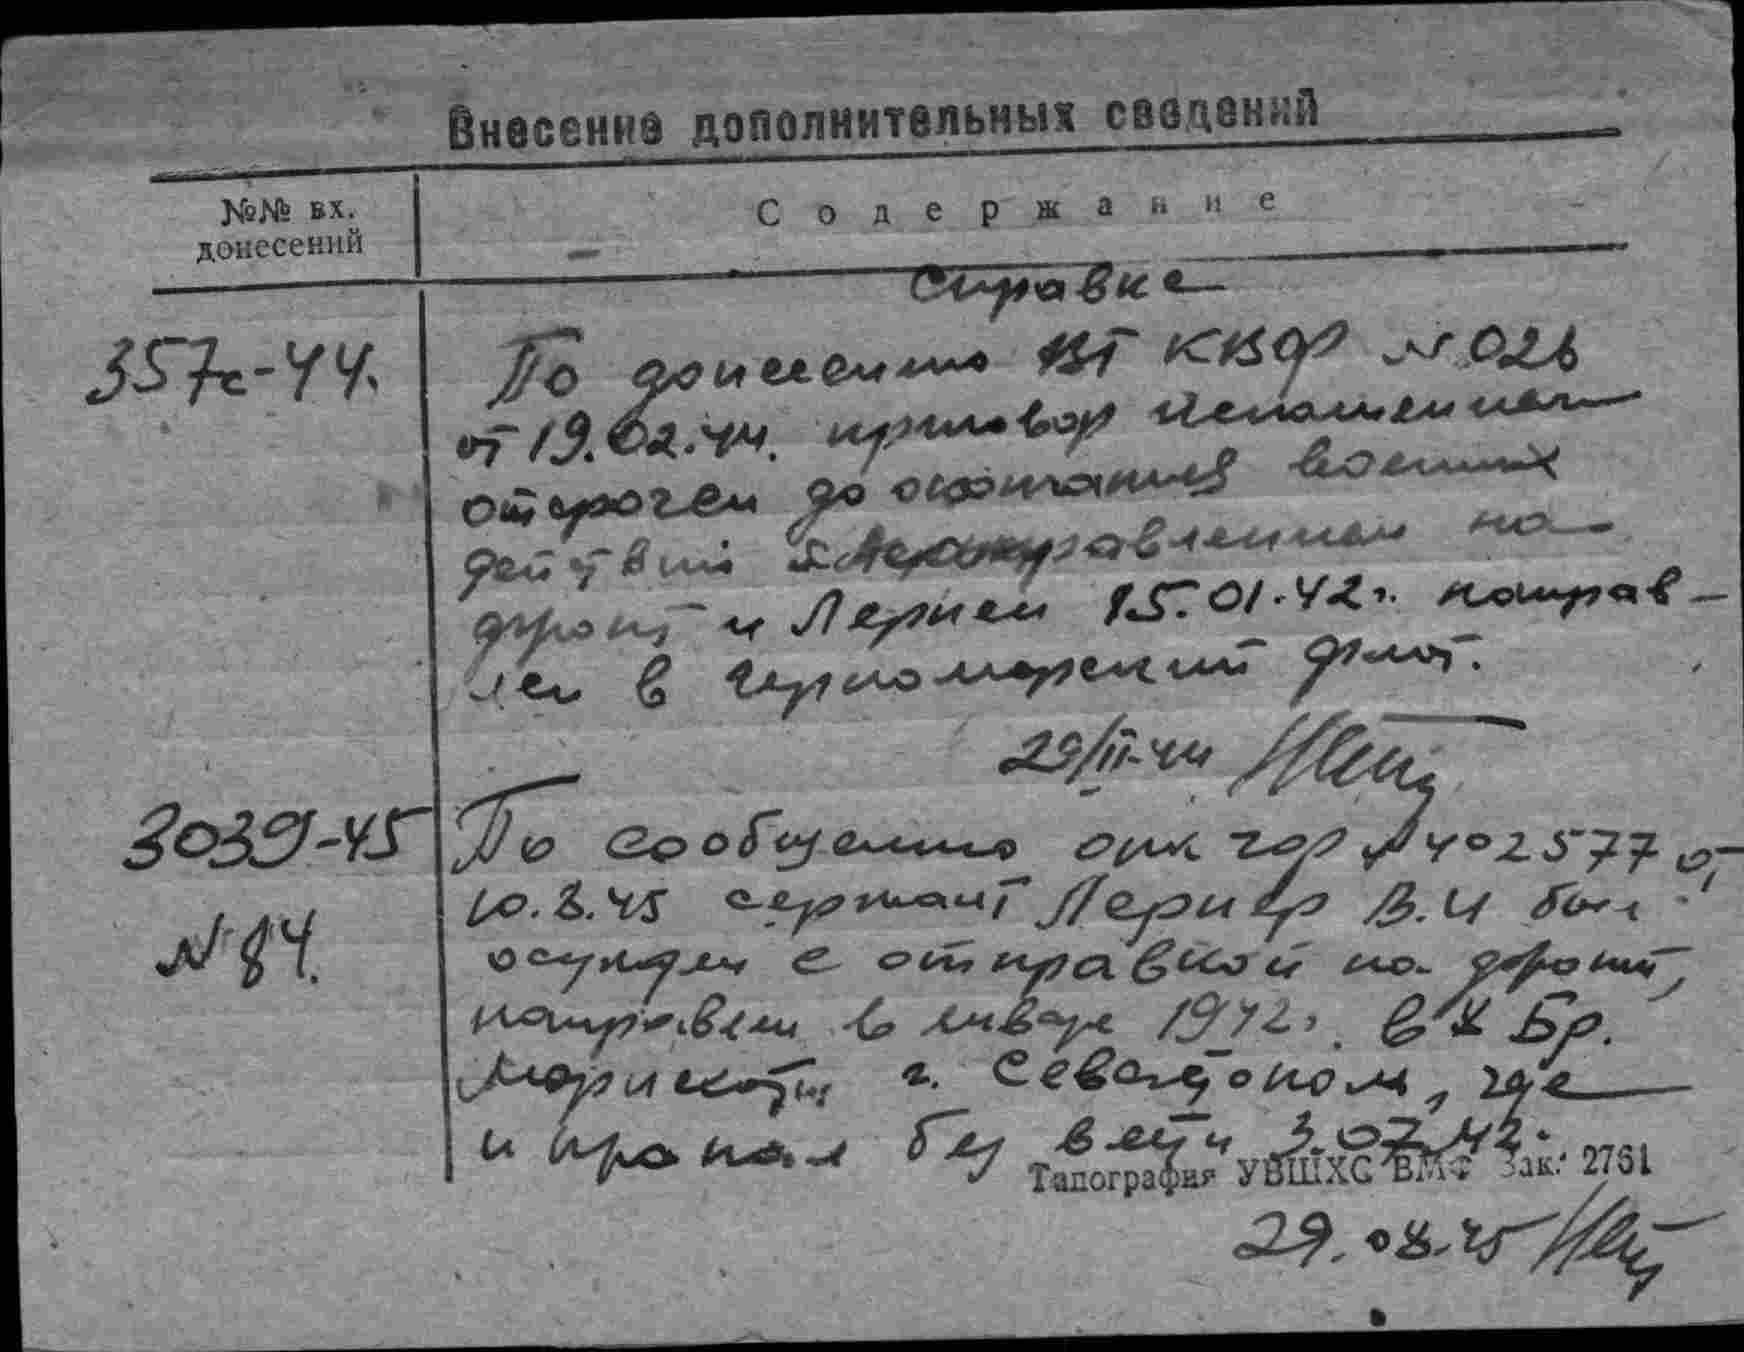 Внесение дополнительных сведений
№№ вх.
донесений
Содержание
Справка
357с-44.
По донесению ВТ КВФ № 026
от 19.02.44. приговор исполнением
отсрочен до окончания военных
действий с направлением на
фронт и Лернер 15.01.42г. направ-
лен в Черноморский флот.
29/II-44
3039-45
№ 84.
По сообщению ЧФ № 402577 от
10.8.45 сержант Лернер В.И был
осужден с отправкой на фронт,
направлен в январе 1942г. в 8 Бр.
Морпехоты г. Севастополь, где
и пропал без вести 3.07.42.
Типография УВШХС ВМФ Зак. 2761
29.08.45